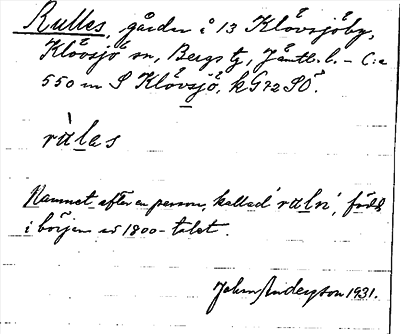 Rulles, gården å 13 Klövsjöby,
Klövsjö sn, Bergs tg, Jämtl. l. – C:a
550 m S Klövsjö, kG72SO.
ràlas
Namnet efter en person, kallad 'raln', född
i början av 1800-talet.
John Anderzson 1931.